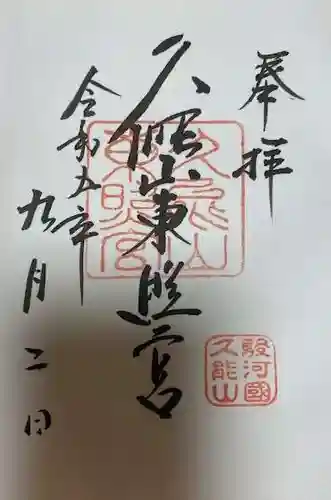 奉拝
久能山東照宮
令和五年
九月二日
駿河國
久能山